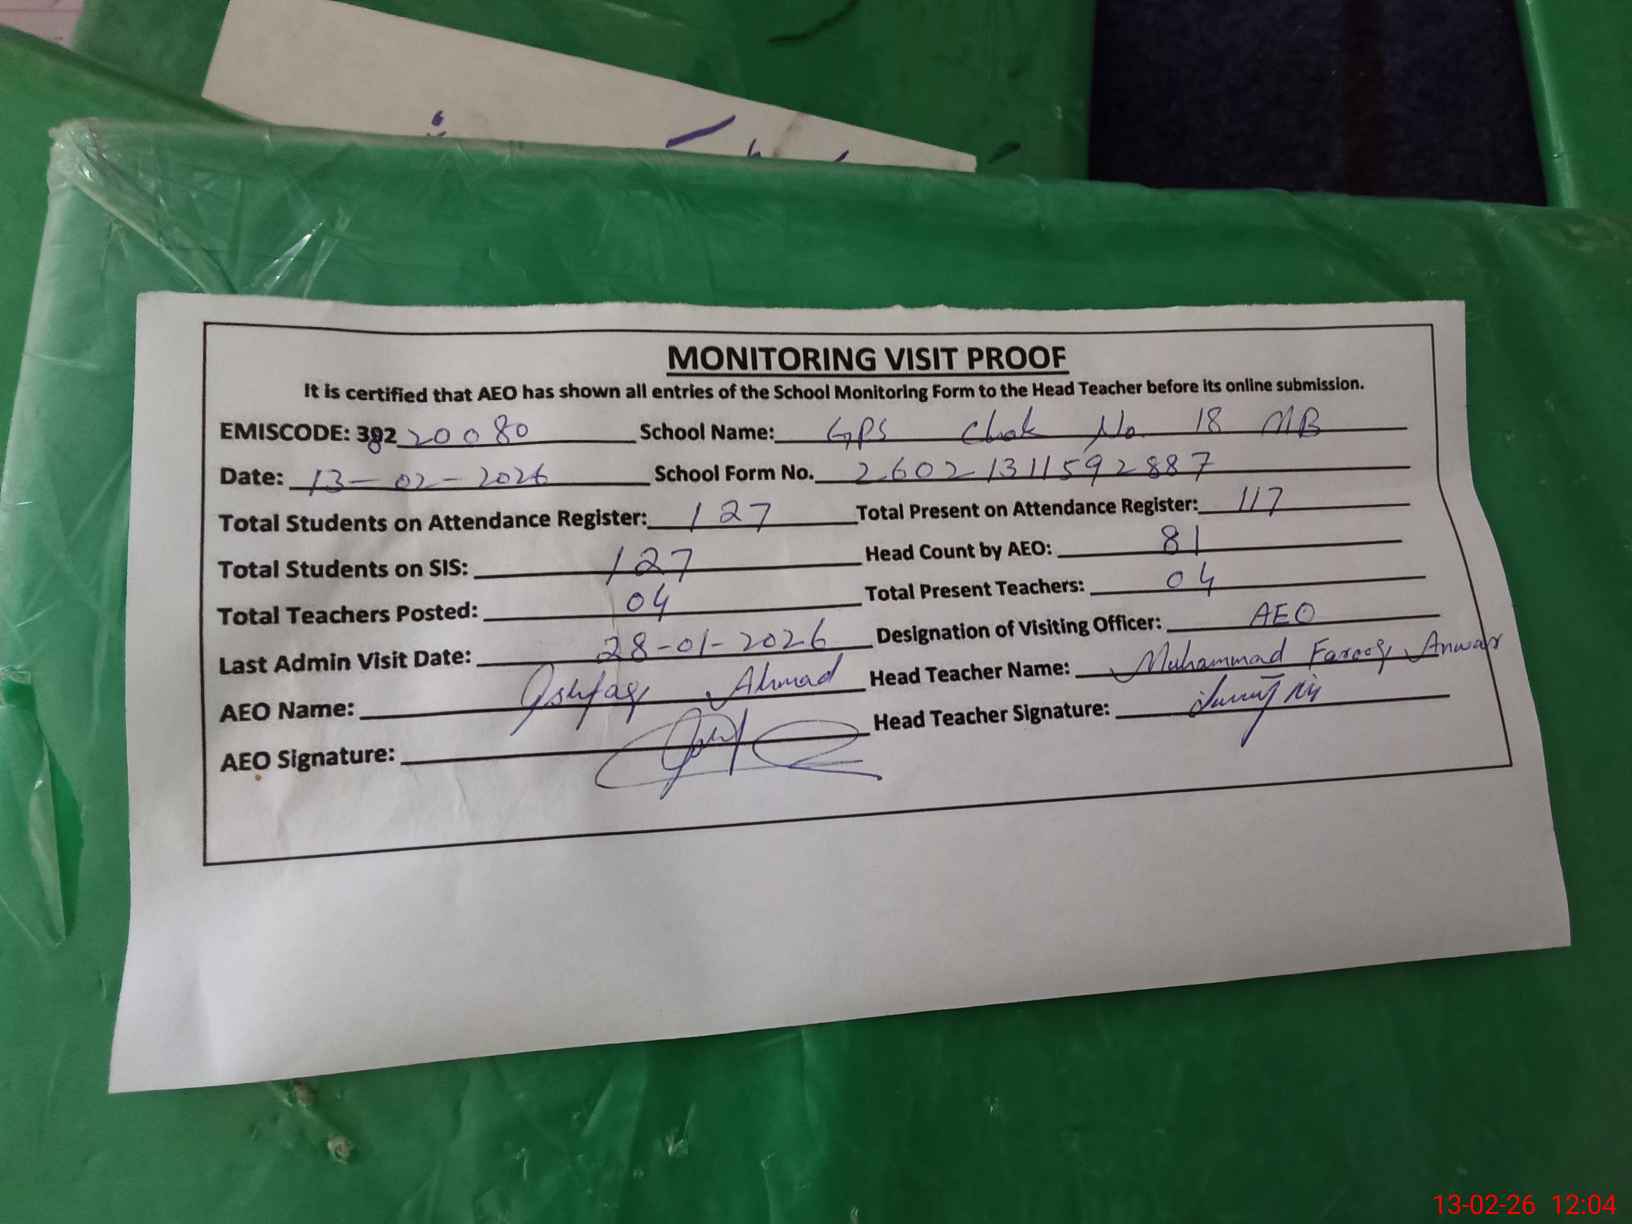 MONITORING VISIT PROOF
It is certified that AEO has shown all entries of the School Monitoring Form to the Head Teacher before its online submission.
EMISCODE: 38220080 School Name: GPS Chak No. 18 MB
Date: 13-02-2026 School Form No. 2602131159 2887
Total Students on Attendance Register: 127 Total Present on Attendance Register: 117
Total Students on SIS: 127 Head Count by AEO: 81
Total Teachers Posted: 04 Total Present Teachers: 04
Last Admin Visit Date: 28-01-2026 Designation of Visiting Officer: AEO
AEO Name: Ishfaq Ahmad Head Teacher Name: Muhammad Farooq Anwar
AEO Signature: Head Teacher Signature:
13-02-26 12:04